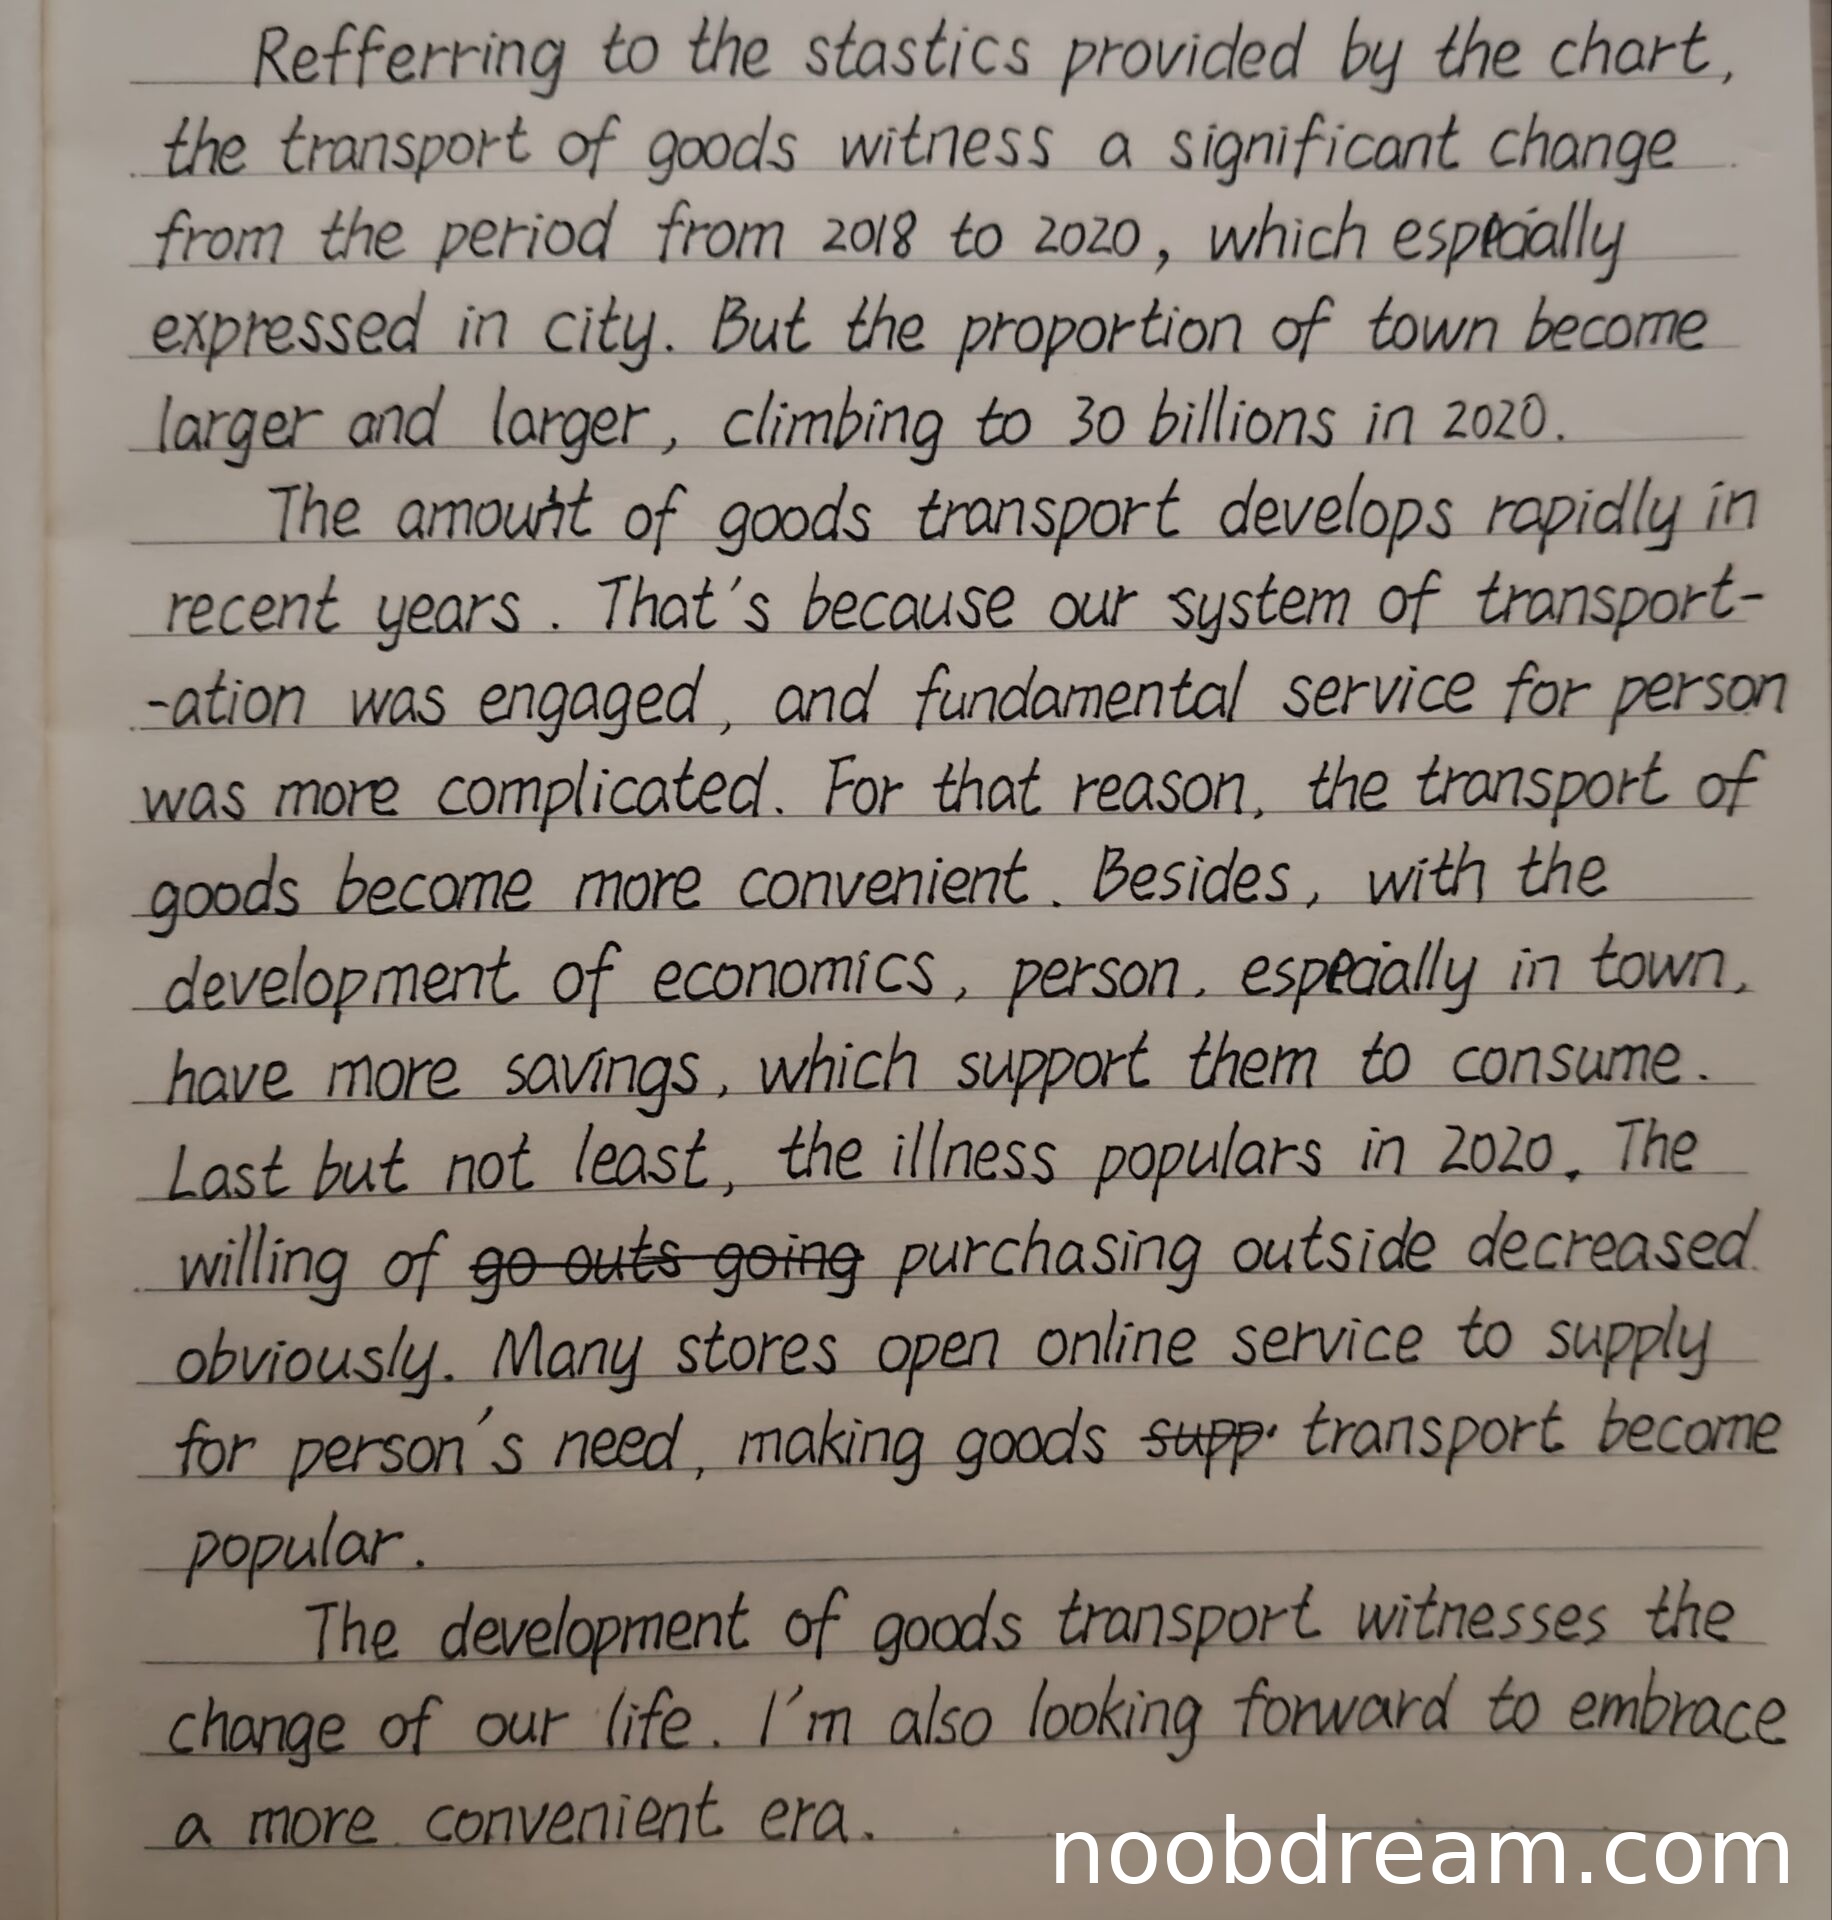 Refferring to the stastics provided by the chart,
the transport of goods witness a significant change
from the period from 2018 to 2020, which especially
expressed in city. But the proportion of town become
larger and larger, climbing to 30 billions in 2020.
The amount of goods transport develops rapidly in
recent years. That's because our system of transport-
-ation was engaged, and fundamental service for person
was more complicated. For that reason, the transport of
goods become more convenient. Besides, with the
development of economics, person, especially in town,
have more savings, which support them to consume.
Last but not least, the illness populars in 2020. The
willing of go outs going purchasing outside decreased
obviously. Many stores open online service to supply
for person's need, making goods supp transport become
popular.
The development of goods transport witnesses the
change of our life. I'm also looking forward to embrace
a more convenient era.
noobdream.com